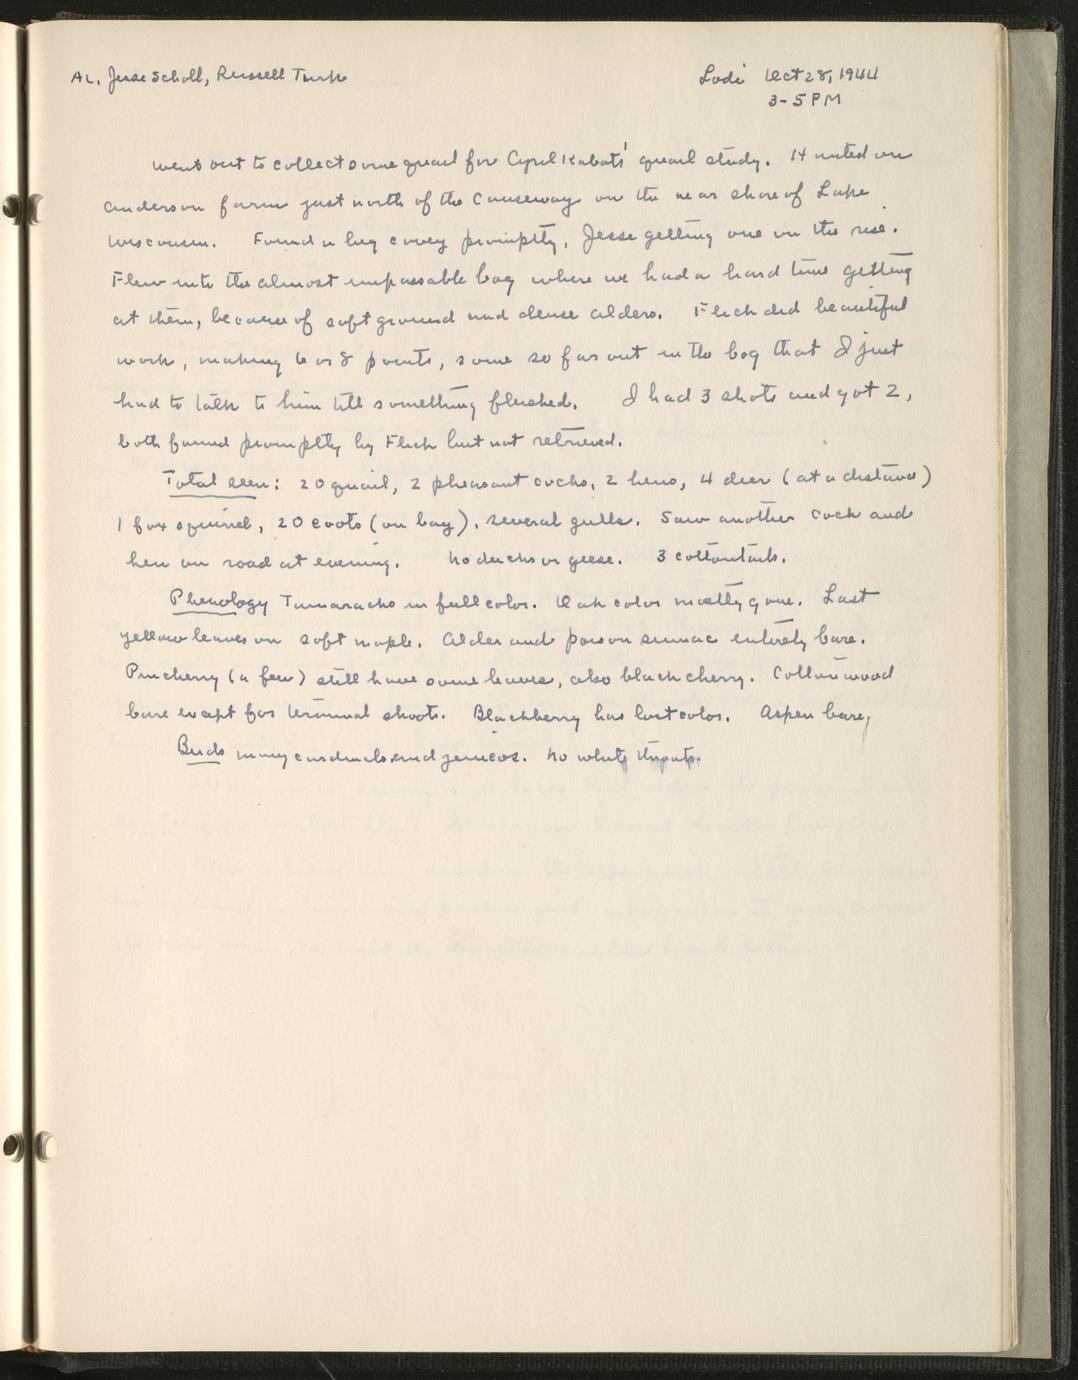 AL, Jesse Scholl, Russell Turk
Lodi Oct 28, 1944
3-5 PM
Went out to collect some quail for Cyril Kabats' quail study. Hunted on
Anderson farm just north of the causeway on the near shore of Lake
Wisconsin. Found a big covey promptly, Jesse getting one on the rise.
Flew into the almost impassable bog where we had a hard time getting
at them, because of soft ground and dense alders. Flick did beautiful
work, making 6 or 8 points, some so far out in the bog that I just
had to talk to him till something flushed. I had 3 shots and got 2,
both found promptly by Flick but not retrieved.
Total seen: 20 quail, 2 pheasant cocks, 2 hens, 4 deer (at a distance)
1 fox squirrel, 20 coots (on bay), several gulls. Saw another cock and
hen on road at evening. No ducks or geese. 3 cottontails.
Phenology Tamaracks in full color. Oak color mostly gone. Last
yellow leaves on soft maple. Alder and poison sumac entirely bare.
Pincherry (a few) still have some leaves, also black cherry. Cottonwood
bare except for terminal shoots. Blackberry has lost color. Aspen bare,
Birds many cardinals and juncos. No white throats.